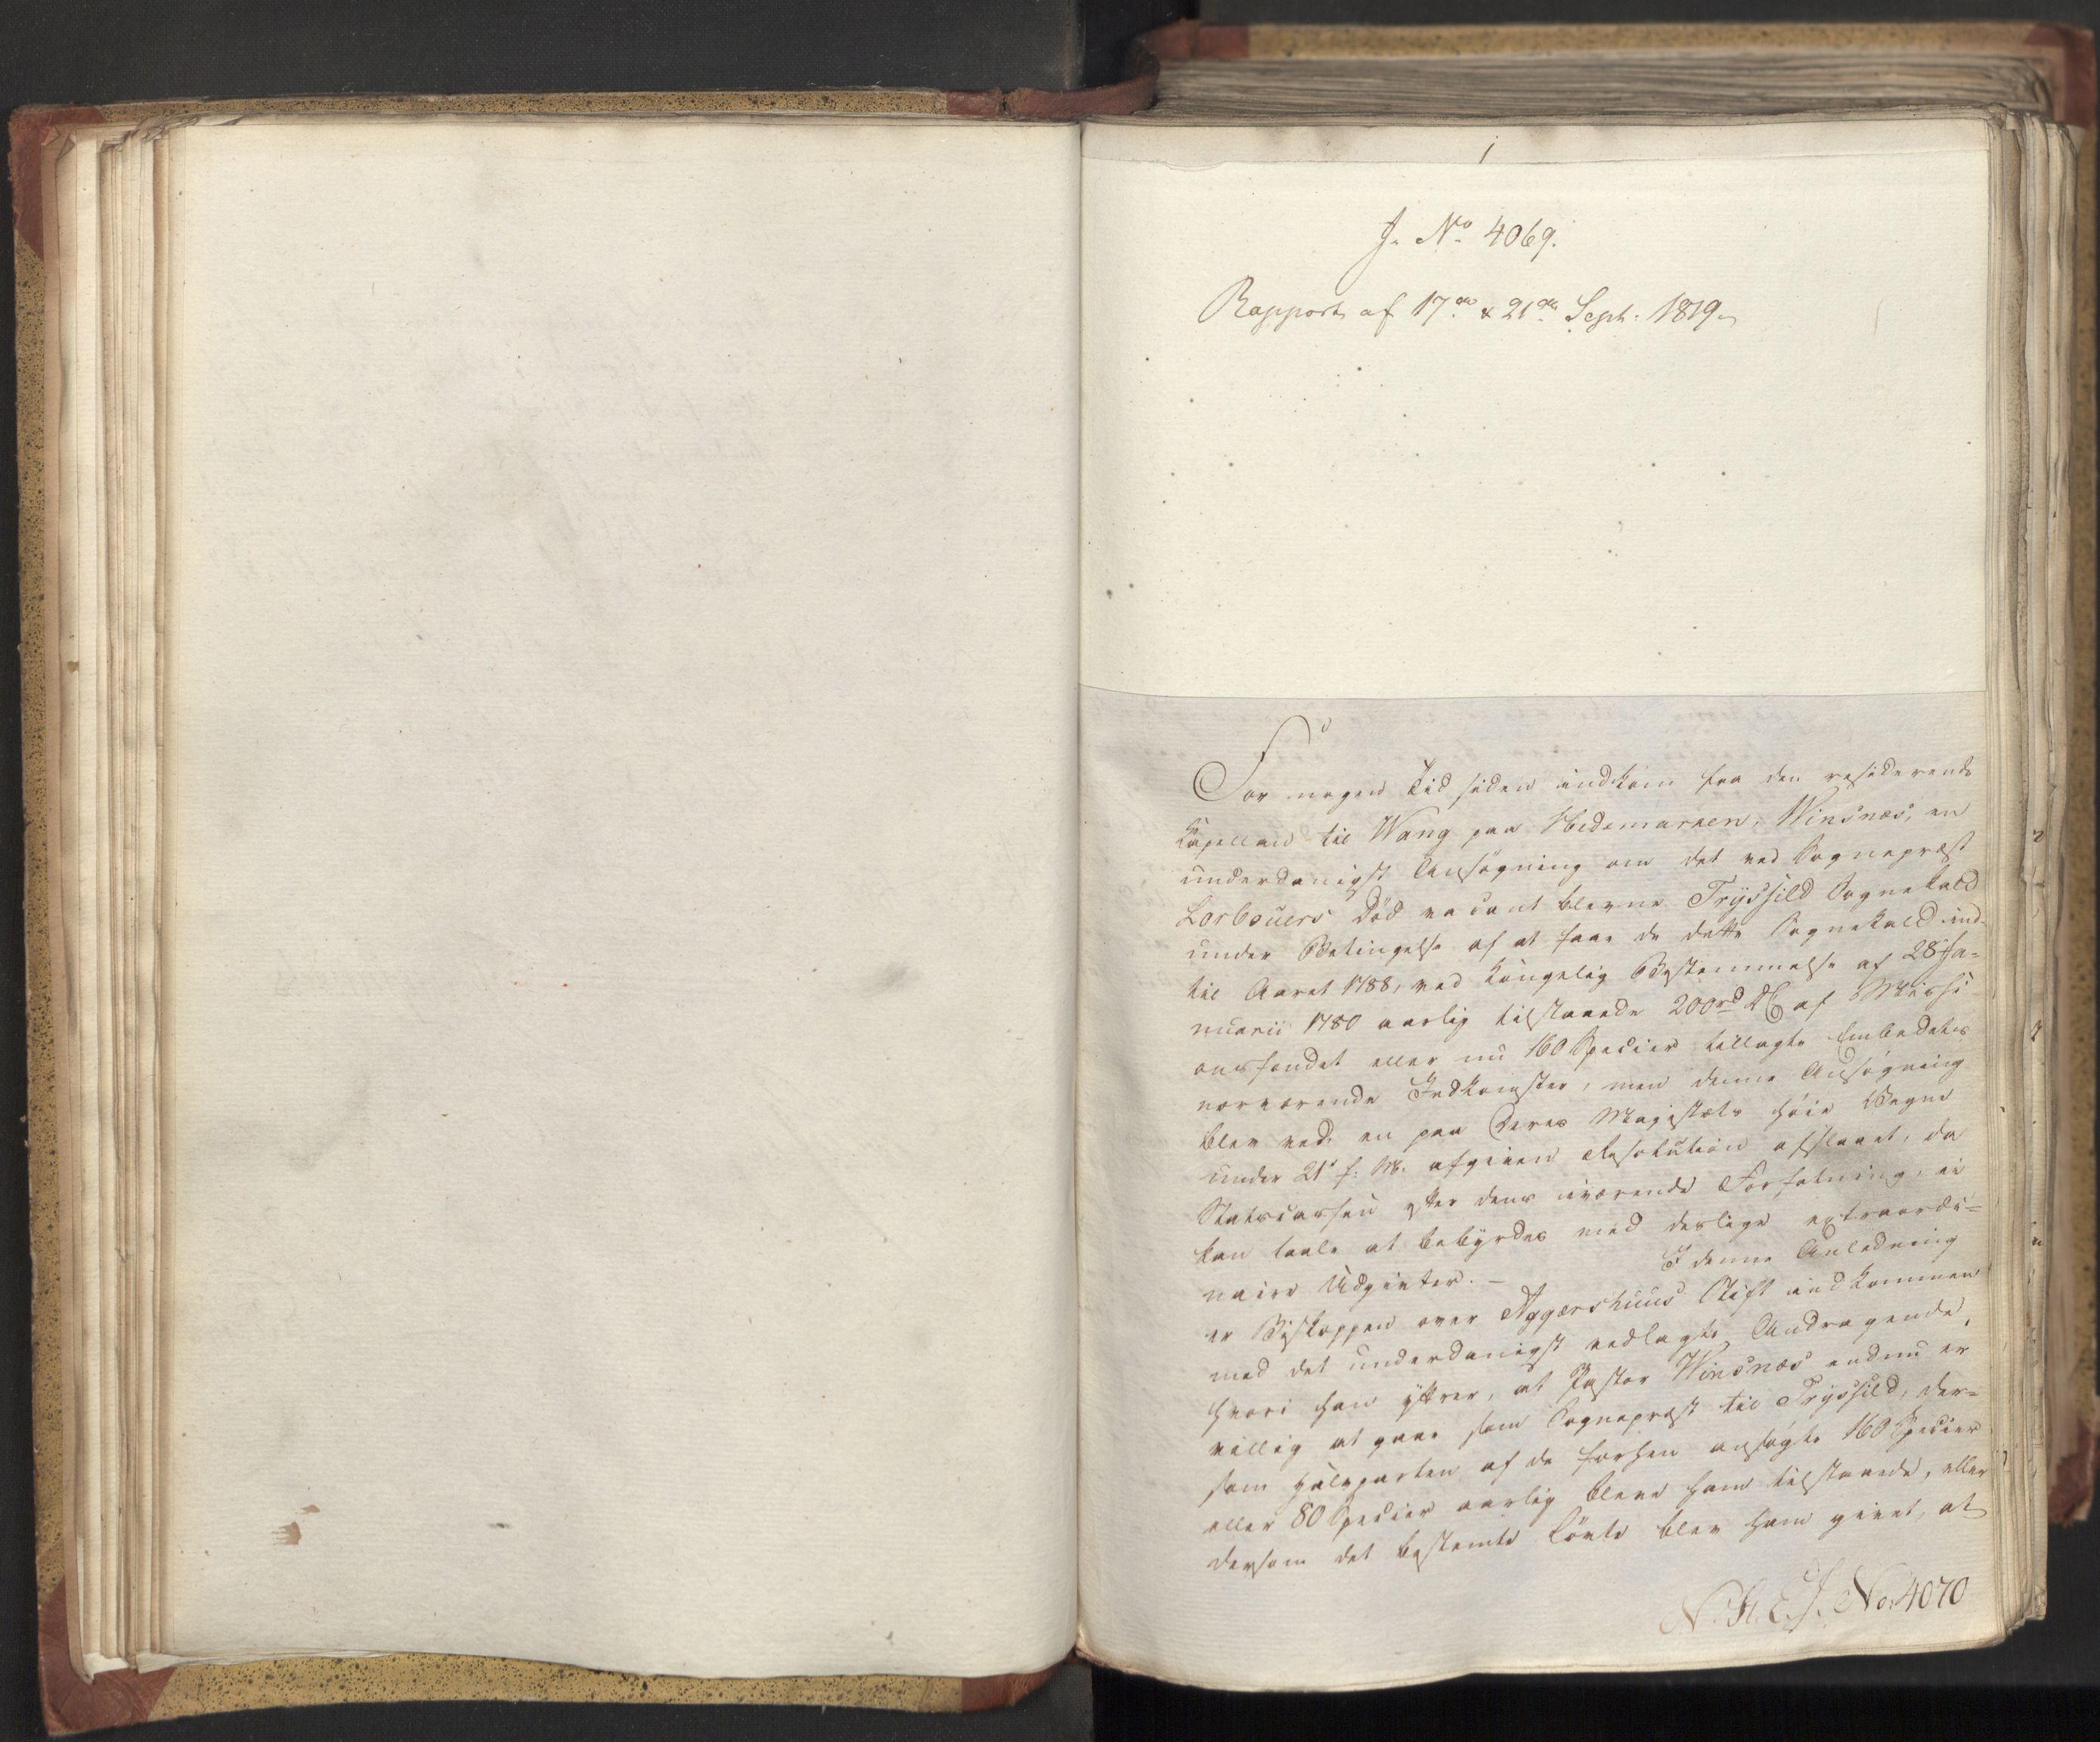 1
J. No. 4069.
Rapport af 17de & 21de Sept. 1819.
For nogen Tid siden indkom fra den residerende
Capellan til Wang paa Hedemarken, Winsnæs, en
underdanigst Ansøgning om det ved Sognepræst
Lorbauers Død vacant blevne Tryssild Sognekald
under Betingelse af at faae de dette Sognekald ind-
til Aaret 1788, ved Kongelig Bestemmelse af 28 Ja-
nuarii 1780 aarlig tilstaaede 200rd DC af Missi-
onsfondet eller nu 160 Specier tillagte Embedets
nærværende Indkomster, men denne Ansøgning
blev ved en paa Deres Majestæts høie Vegne
under 21 f. M. afgiven Resolution afslaaet, da
Statscassen efter dens nuværende Forfatning, ei
kan taale at bebyrdes med deslige extraordi-
naire Udgivter. - I denne Anledning
er Biskoppen over Aggershuus Stift indkommen
med det underdanigst vedlagte Andragende,
hvori han yttrer, at Pastor Winsnæs endnu er
villig at gaae som Sognepræst til Tryssild, der-
som Halvparten af de forhen ansøgte 160 Specier
eller 80 Specier aarlig bleve ham tilstaaede, eller
dersom det bestemte Løvte blev ham givet, at
N. St. E. J. No. 4070